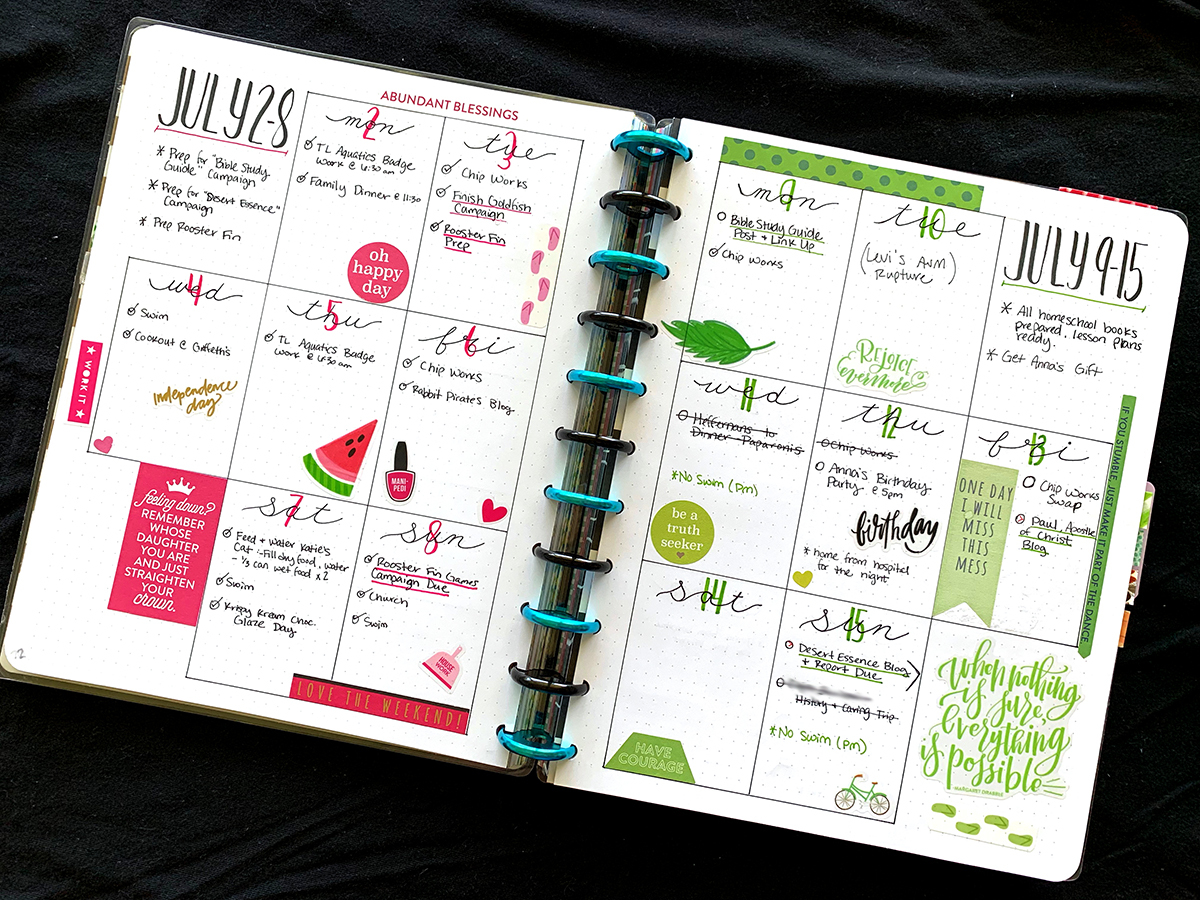 JULY 2-8
* Prep for "Bible Study
Guide" Campaign
* Prep for "Desert Essence"
Campaign
* Prep Rooster Fin
ABUNDANT BLESSINGS
mon
2
TL Aquatics Badge
work @ 6:30 am
Family Dinner @ 11:30
oh
happy
day
tue
3
Chip Works
Finish Goldfish
Campaign
Rooster Fin
Prep
★ WORK IT ★
wed
4
Swim
Cookout @ Griffeth's
independence
day
thu
5
TL Aquatics Badge
work @ 6:30 am
fri
6
Chip Works
Rabbit Pirates Blog
MANI-
PEDI
feeling down?
REMEMBER
WHOSE
DAUGHTER
YOU ARE
AND JUST
STRAIGHTEN
YOUR
crown.
sat
7
Feed + Water Katie's
Cat - Fill dry food, water
- 1/3 can wet food x 2
Swim
Krispy Kream Choc.
Glaze Day
sun
8
Rooster Fin Games
Campaign Due
Church
Swim
HOUSE
WORK
LOVE THE WEEKEND!
mon
9
Bible Study Guide
Post + Link Up
Chip Works
tue
10
(Levi's AVM
Rupture)
Rejoice
evermore
JULY 9-15
* All homeschool books
prepared, lesson plans
ready.
* Get Anna's Gift
wed
11
Heffernans to
Dinner - Paparonis
*No Swim (Pm)
be a
truth
seeker
thu
12
Chip Works
Anna's Birthday
Party @ 5pm
birthday
* home from hospital
for the night
fri
13
Chip Works
Swap
Paul, Apostle
of Christ
Blog
ONE DAY
I WILL
MISS
THIS
MESS
IF YOU STUMBLE, JUST MAKE IT PART OF THE DANCE
sat
14
HAVE
COURAGE
sun
15
Desert Essence Blog
+ Report Due
History + Caving Trip
*No Swim (pm)
When nothing
is sure,
everything
is possible
-MARGARET DRABBLE